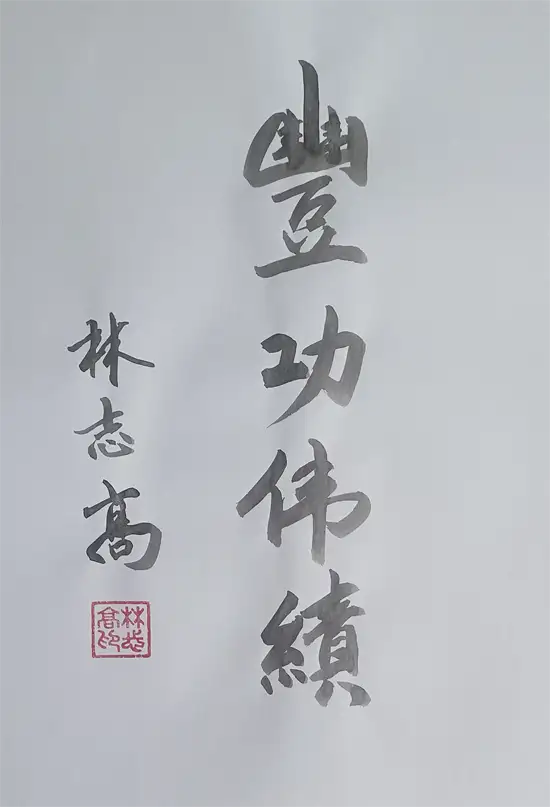 豐功伟績
林志高
林志高印